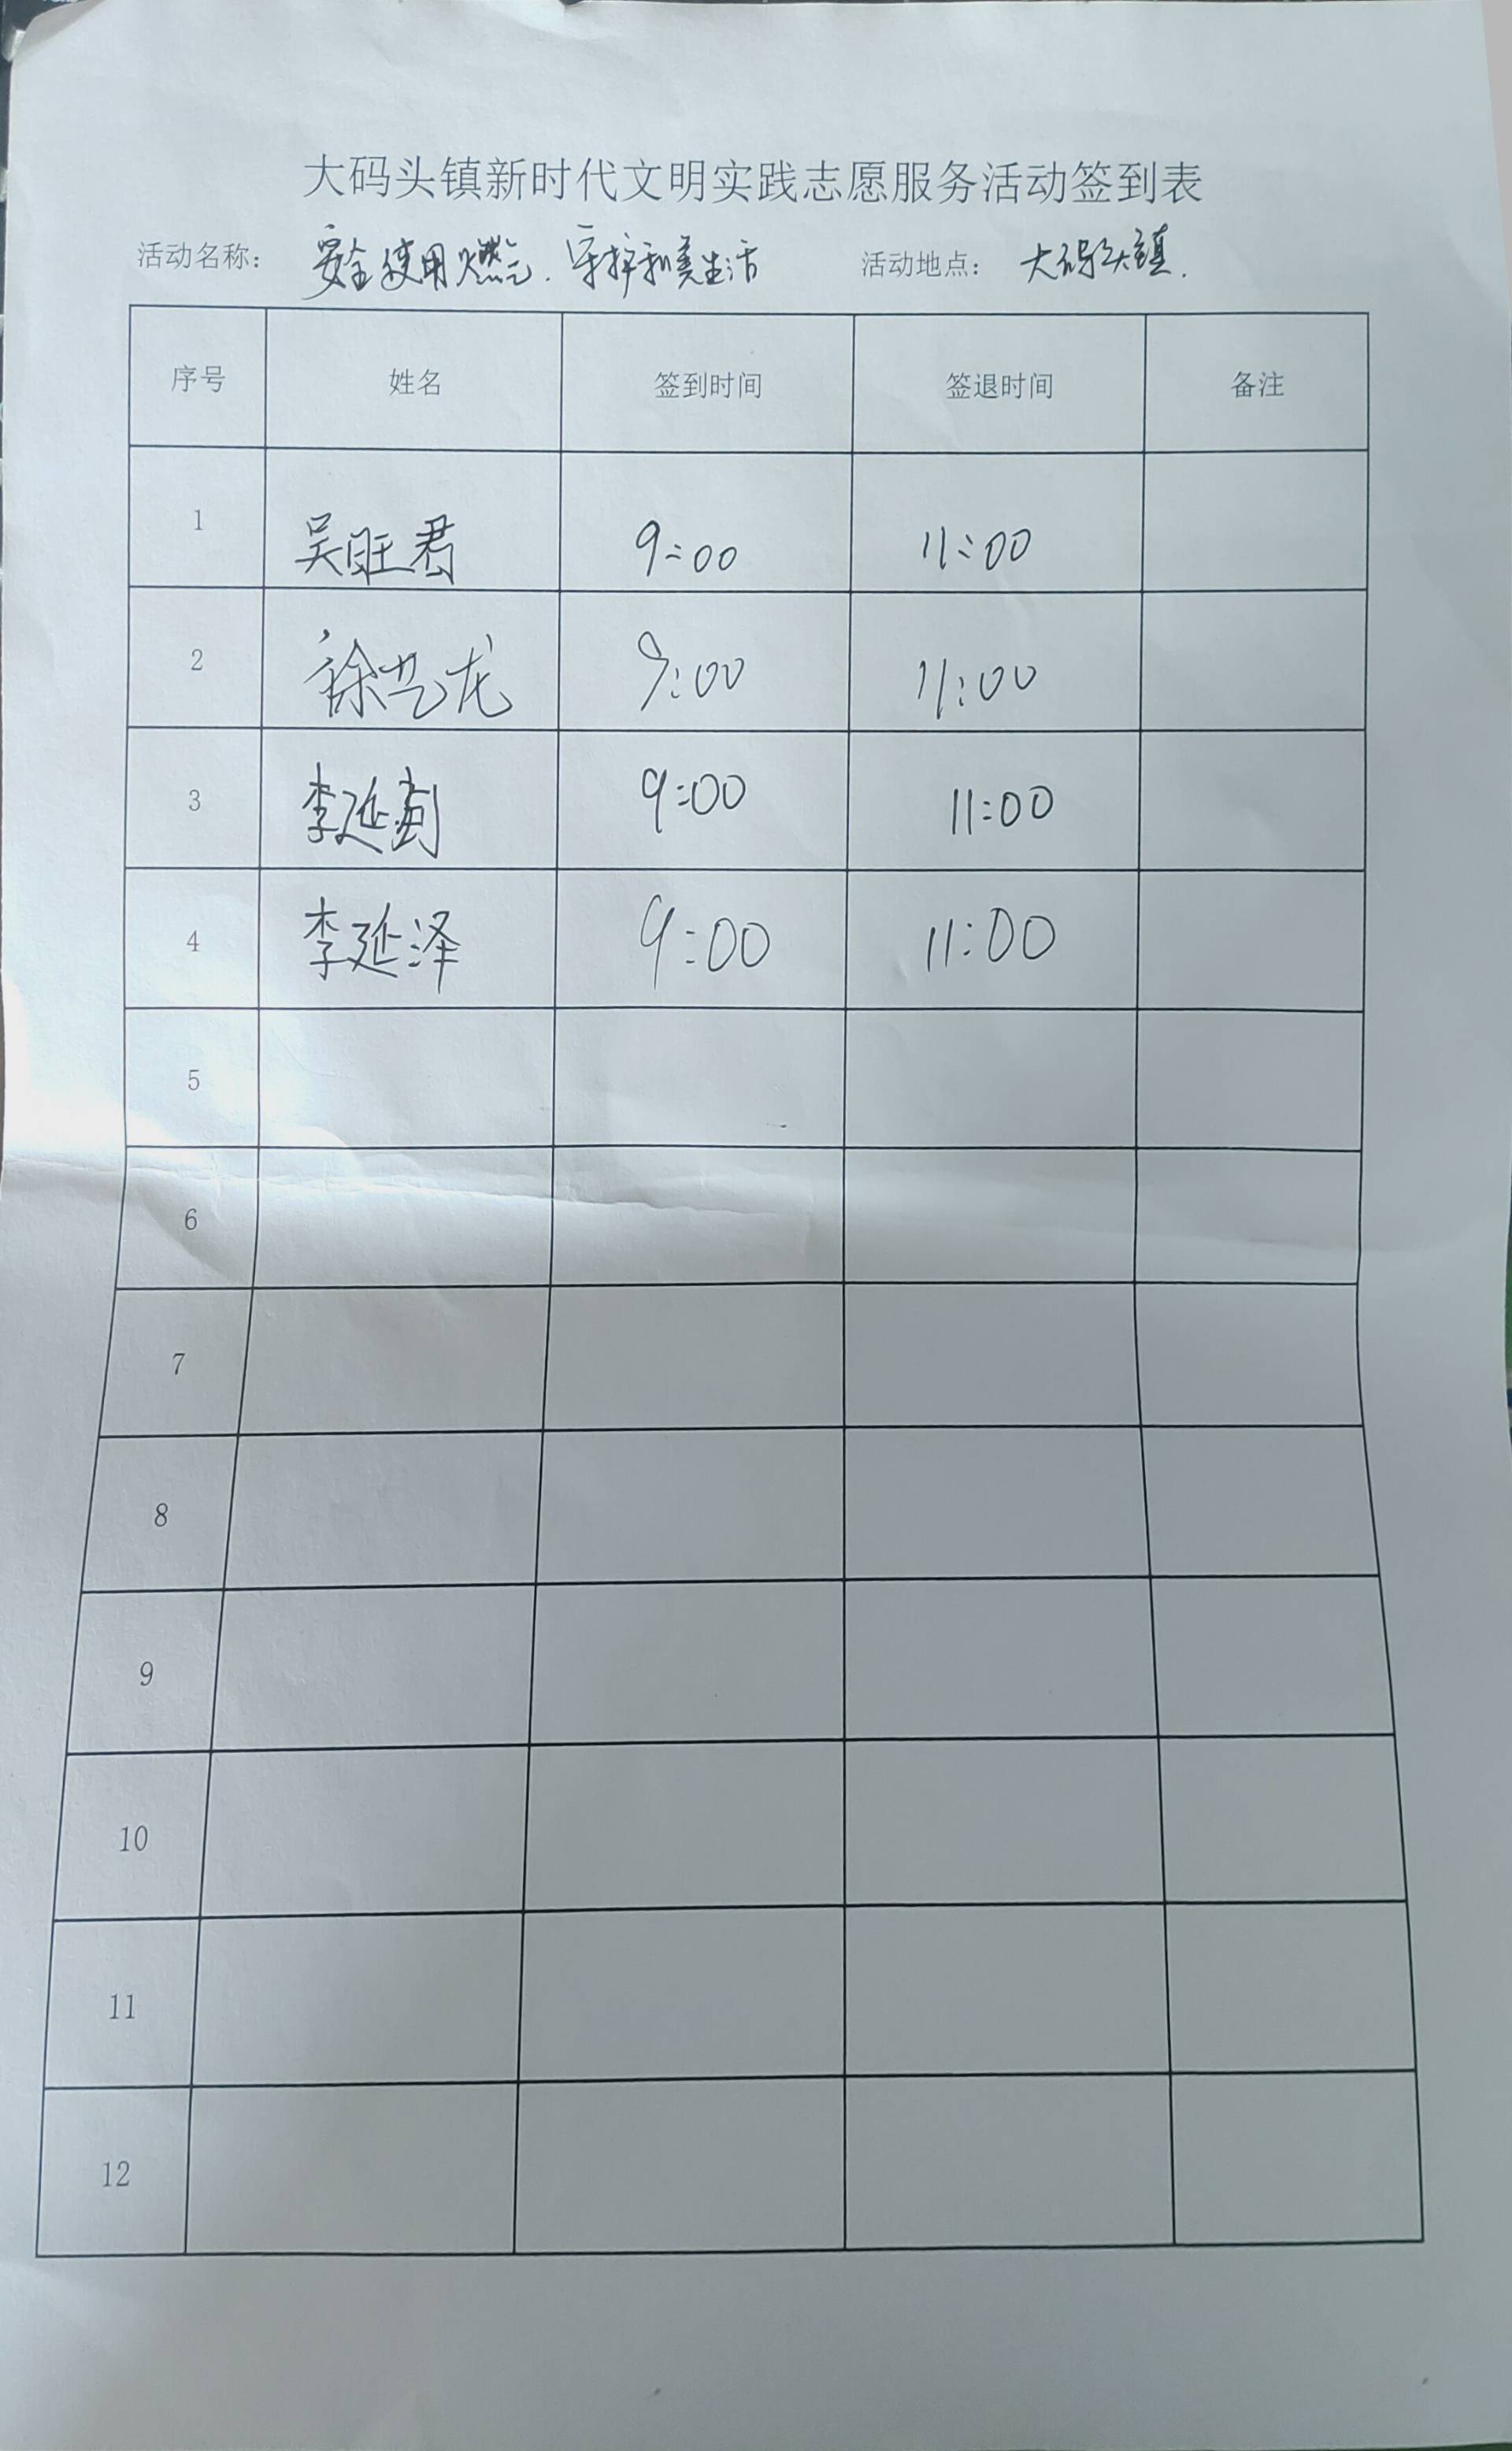 大码头镇新时代文明实践志愿服务活动签到表
活动名称: 安全使用燃气.守护和美生活 活动地点: 大码头镇.
序号 姓名 签到时间 签退时间 备注
1 吴旺君 9:00 11:00
2 徐艺龙 9:00 11:00
3 李延 9:00 11:00
4 李延泽 9:00 11:00
5
6
7
8
9
10
11
12